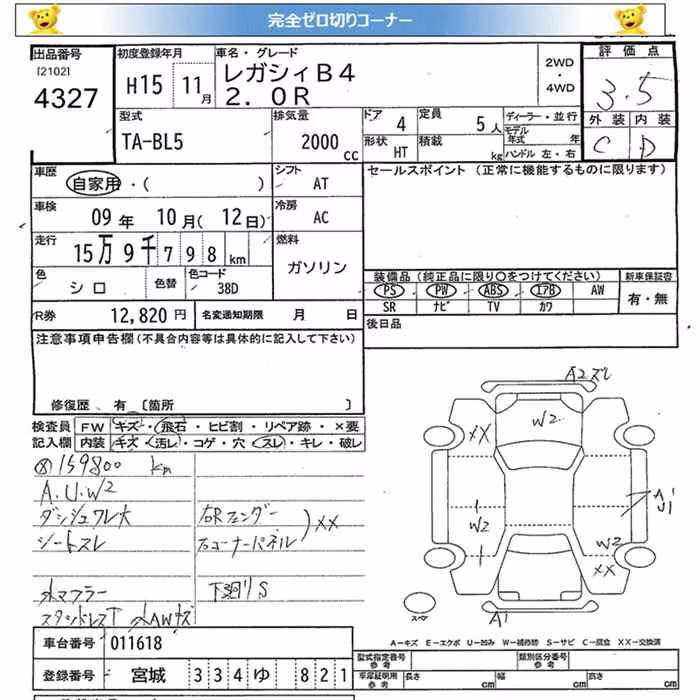 完全ゼロ切りコーナー
出品番号
[2102]
4327
初度登録年月
H15 11月
車名・グレード
レガシィB4
2.0R
2WD
・
4WD
評価点
3.5
外装 内装
C D
型式
TA-BL5
排気量
2000 cc
ドア 4
形状 HT
定員 5人
積載 kg
ディーラー・並行
モデル年式 年
ハンドル 左・右
車歴
自家用・( )
シフト
AT
セールスポイント (正常に機能するものに限ります)
車検
09年 10月(12日)
冷房
AC
走行
15万9千798km
燃料
ガソリン
色
シロ
色替
色コード
38D
装備品(純正品に限り○をつけてください)
新車保証書
PS PW ABS エアB AW
有・無
SR ナビ TV カワ
R券 12,820円
名変通知期限 月 日
後日品
注意事項申告欄(不具合内容等は具体的に記入して下さい)
修復歴 有 〔箇所 〕
検査員
記入欄
FW キズ・飛石・ヒビ割・リペア跡・×要
内装 キズ・汚レ・コゲ・穴・スレ・キレ・破レ
159800 km
A.U.W2
ダッシュワレ大
シートスレ
右Rフェンダー
右コーナーパネル
XX
外マフラー
下廻りS
外AWキズ
A2ズレ
W2
XX
W2
A1
U1
W2
XX
A1
スペア
A=キズ E=エクボ U=凹み W=補修跡 S=サビ C=腐食 XX=交換済
車台番号 011618
型式指定番号
参考
類別区分番号
参考
登録番号 宮城 334 ゆ 821
車庫証明用
参考
長さ cm
幅 cm
高さ cm